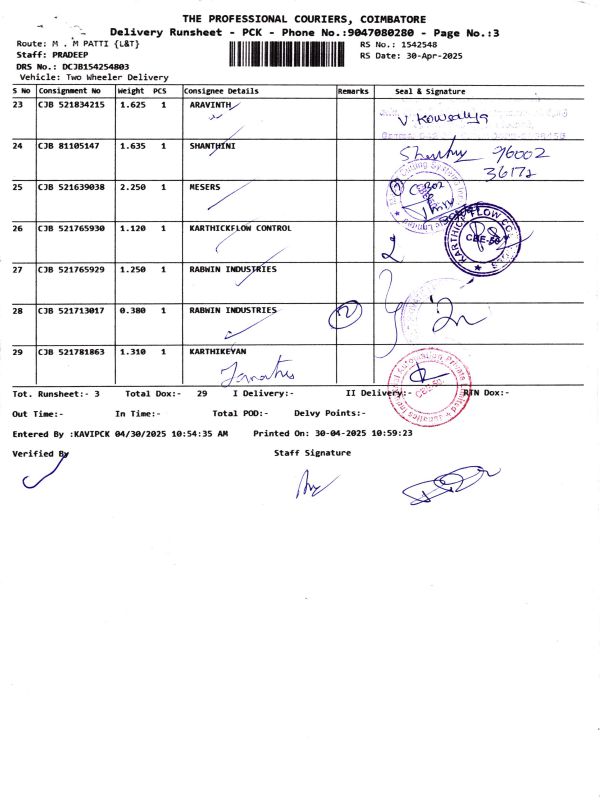 THE PROFESSIONAL COURIERS, COIMBATORE
Delivery Runsheet - PCK - Phone No.:9047080280 - Page No.:3
Route: M . M PATTI {L&T} RS No.: 1542548
Staff: PRADEEP RS Date: 30-Apr-2025
DRS No.: DCJB154254803
Vehicle: Two Wheeler Delivery
S No Consignment No Weight PCS Consignee Details Remarks Seal & Signature
23 CJB 521834215 1.625 1 ARAVINTH
V. Kowsalya
24 CJB 81105147 1.635 1 SHANTHINI
96002
36172
25 CJB 521639038 2.250 1 MESERS
26 CJB 521765930 1.120 1 KARTHICKFLOW CONTROL
KARTHICK FLOW CBE-50
27 CJB 521765929 1.250 1 RABWIN INDUSTRIES
28 CJB 521713017 0.380 1 RABWIN INDUSTRIES 2
29 CJB 521781863 1.310 1 KARTHIKEYAN
Janatics
Automation Private Limited
Tot. Runsheet:- 3 Total Dox:- 29 I Delivery:- II Delivery:- RTN Dox:-
Out Time:- In Time:- Total POD:- Delvy Points:-
Entered By :KAVIPCK 04/30/2025 10:54:35 AM Printed On: 30-04-2025 10:59:23
Verified By Staff Signature